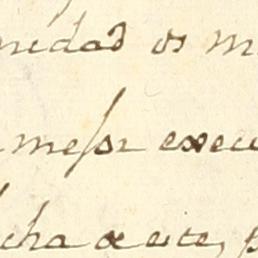 nidad os m
mejor execu
cha de este, p